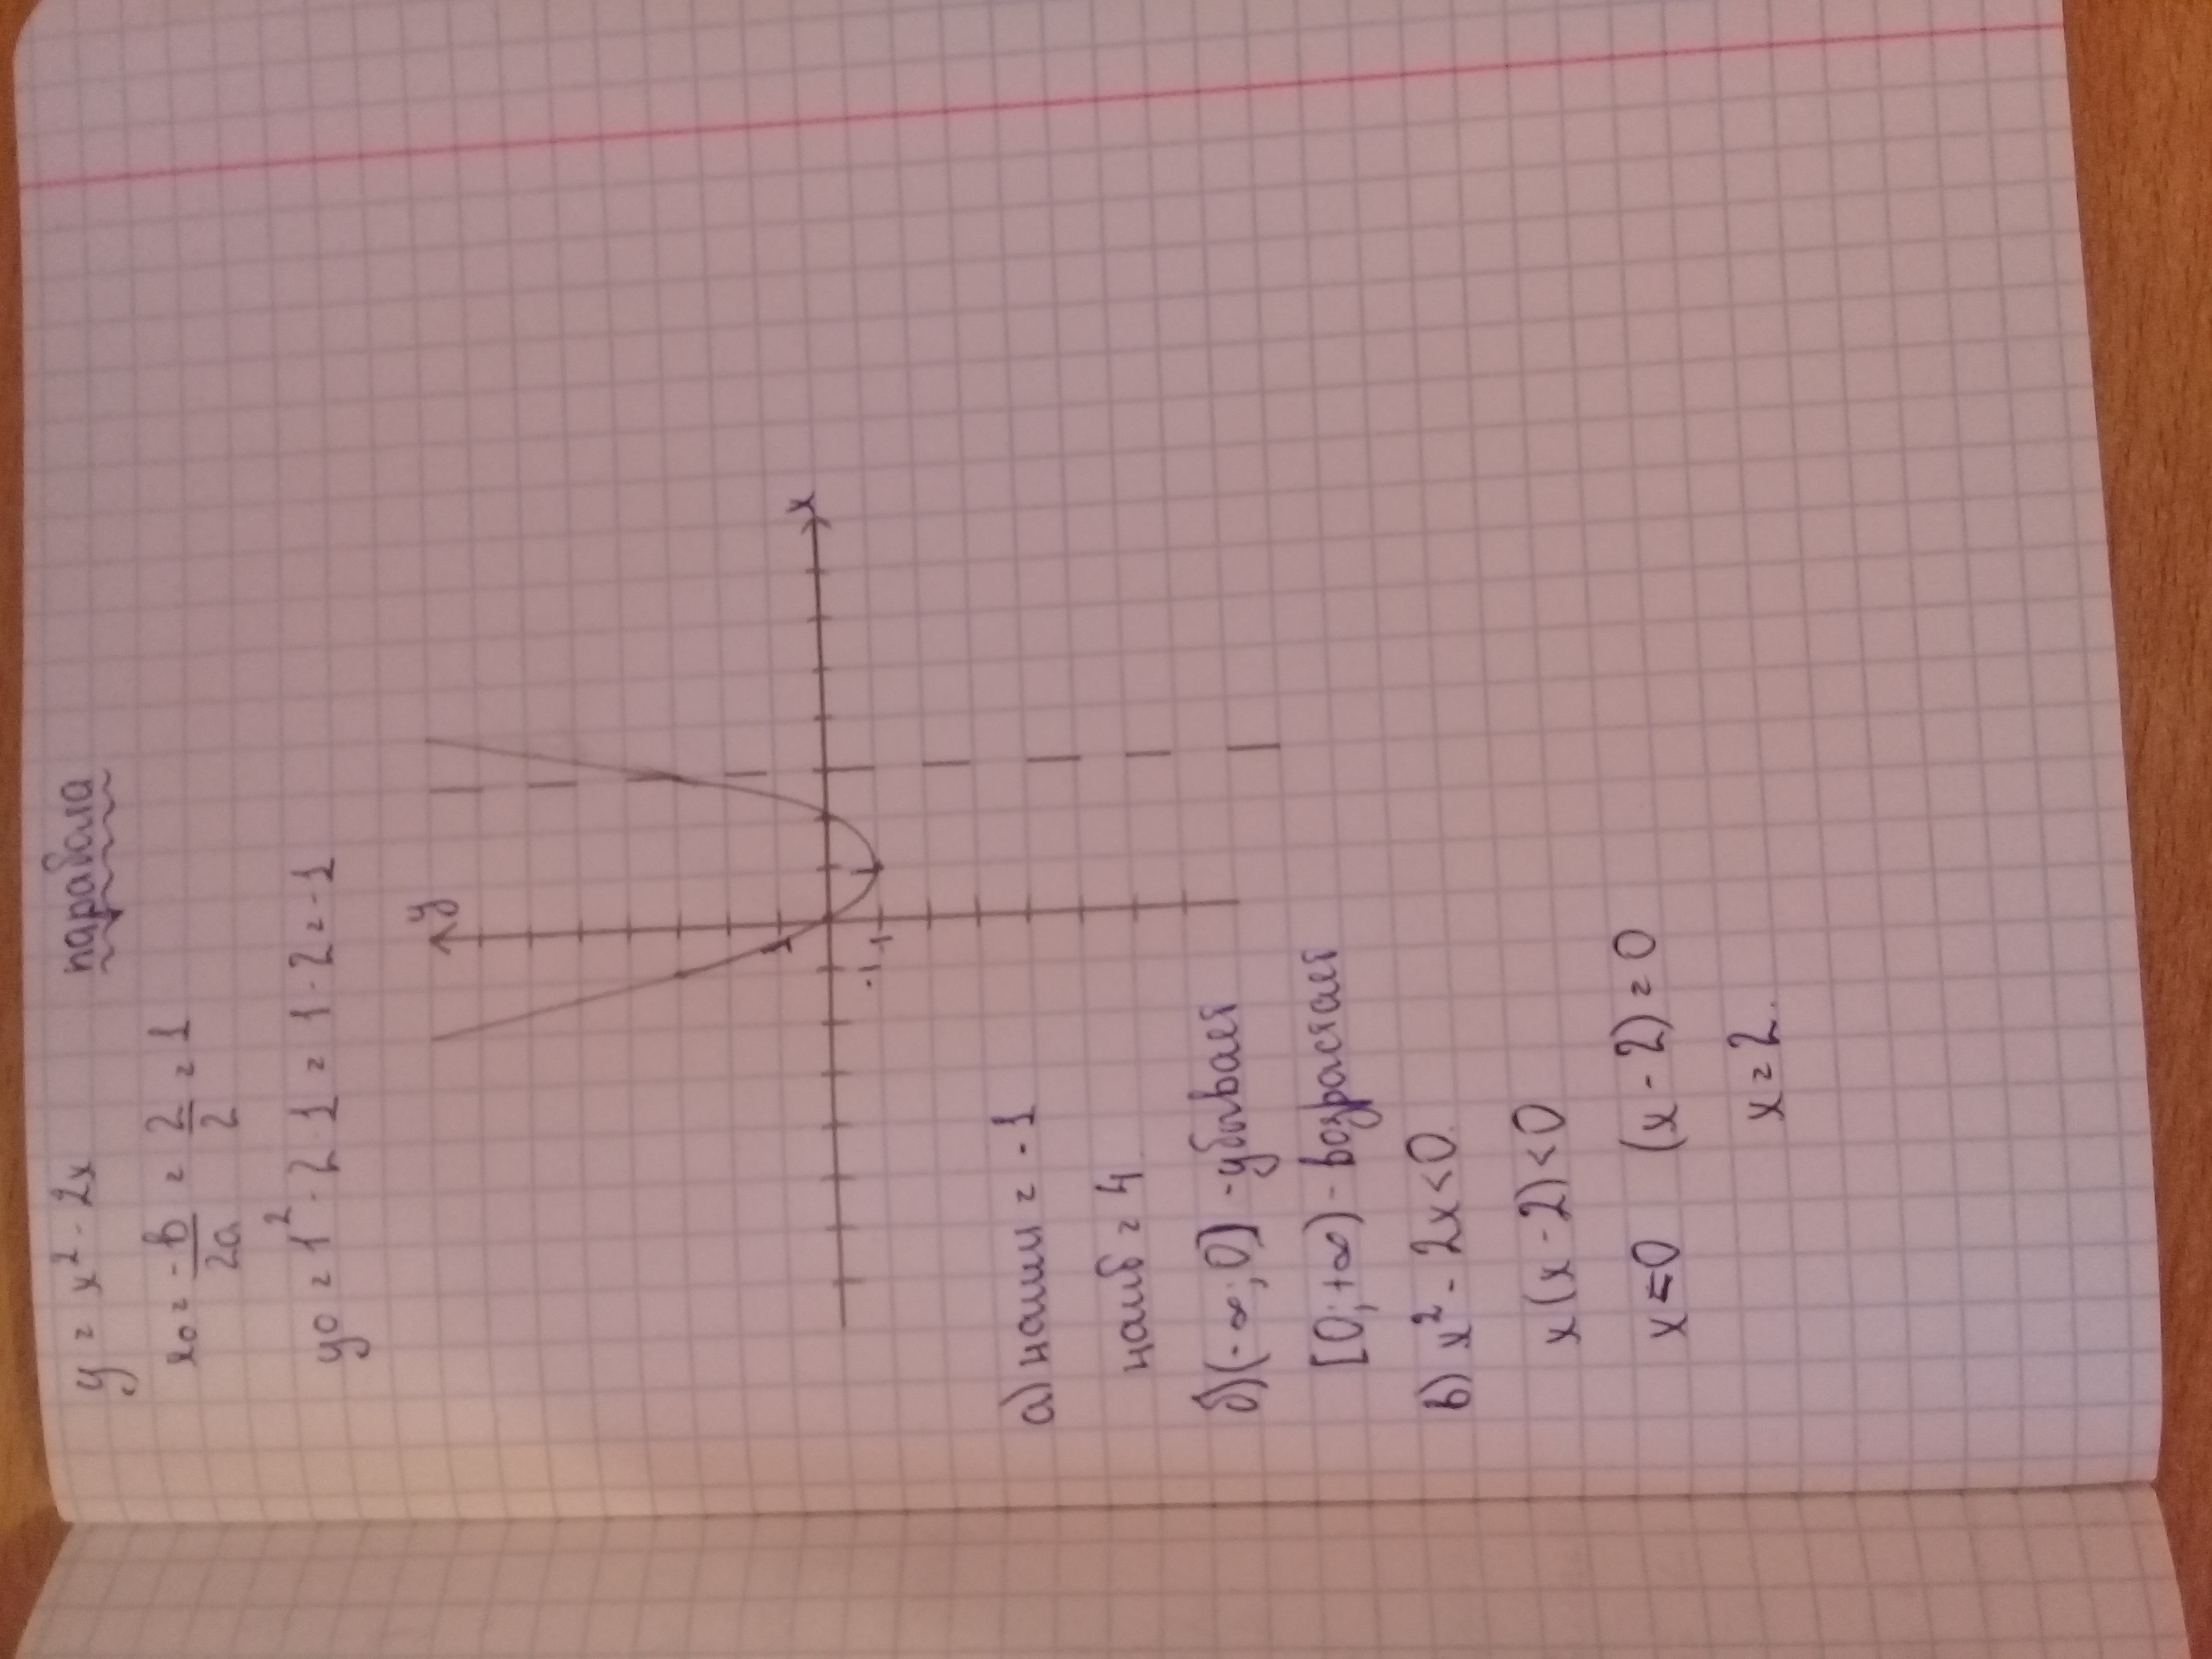 y = x² - 2x парабола
x0 = -b/2a = 2/2 = 1
y0 = 1² - 2·1 = 1 - 2 = -1
y
x
1
-1
1
а) наим = -1
наиб = 4
б) (-∞; 0] - убывает
[0; +∞) - возрастает
в) x² - 2x < 0
x(x - 2) < 0
x = 0 (x - 2) = 0
x = 2.